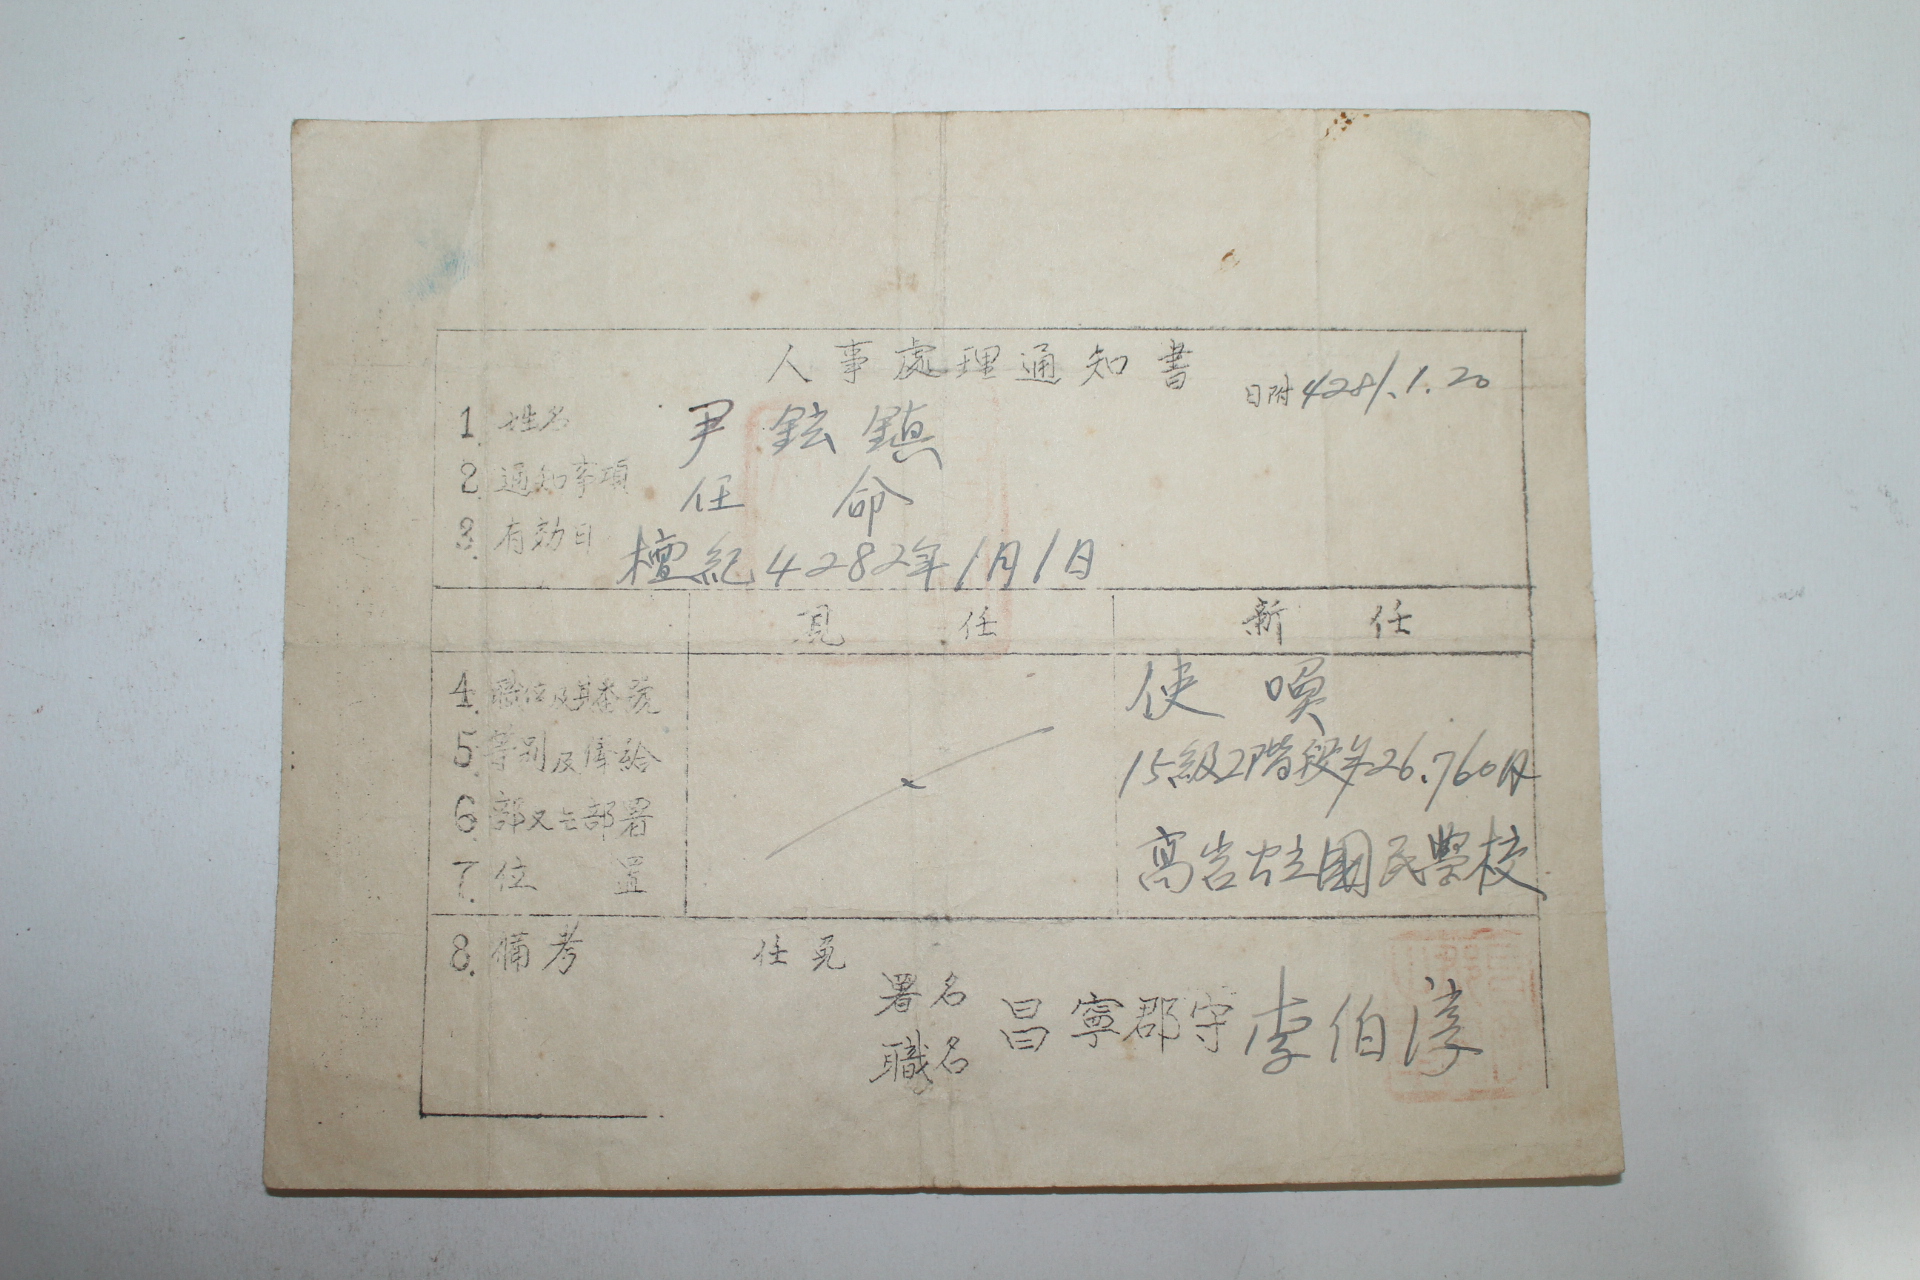 人事處理通知書
日附 4281.1.20
1. 姓名 尹鉉鎭
2. 通知事項 任命
3. 有効日 檀紀4282年1月1日
現任 新任
4. 職位及其番號 使喚
5. 等別及俸給 15級2階段年26.760円
6. 部又는部署
7. 位置 高岩公立國民學校
8. 備考 任免
署名
職名 昌寧郡守 李伯淳